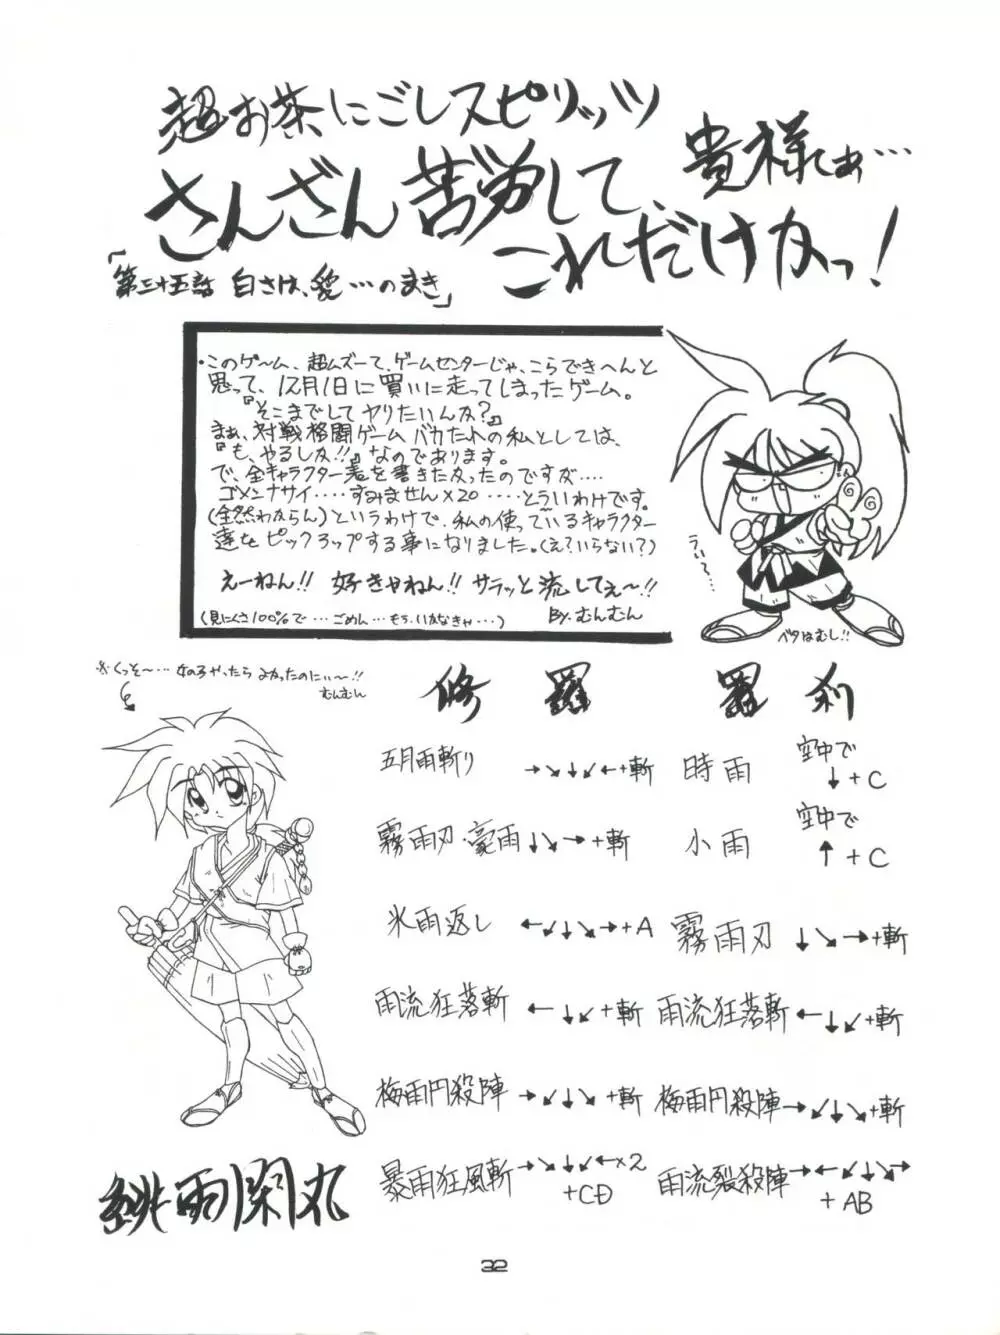 超お茶にごしスピリッツ
さんざん苦労して、貴様てぁ…
これだけかっ!
「第三十五話 白さは、愛…のまき」
・このゲーム、超ムズーて、ゲームセンターじゃ、こらできへんと
思って、12月1日に買いに走ってしまったゲーム。
『そこまでしてヤりたいんか?』
まぁ、対戦格闘ゲームバカたれの私としては、
『も、やるしか!!』なのであります。
で、全キャラクター表を書きたかったのですが‥‥
ゴメンナサイ‥‥すみません×20‥‥とういわけです。
(全然わからん)というわけで、私の使っているキャラクター
達をピックアップする事になりました。(え?いらない?)
えーねん!! 好きやねん!! サラッと流してぇ〜!!
(見にくさ100%で…ごめん…もち、いかなきゃ…)
By.むんむん
うぃ〜…
ベタはむし!!
※くっそ〜…女の子やったらよかったのにぃ〜!!
むんむん
修羅 羅刹
五月雨斬り →↘↓↙←+斬 時雨 空中で↓+C
霧雨刃・豪雨 ↓↘→+斬 小雨 空中で↑+C
氷雨返し ←↙↓↘→+A 霧雨刃 ↓↘→+斬
雨流狂落斬 ←↓↙+斬 雨流狂落斬 ←↓↙+斬
梅雨円殺陣 →↙↓↘+斬 梅雨円殺陣 →↙↓↘+斬
暴雨狂風斬 →↘↓↙←×2+CD 雨流裂殺陣 →←↙↓↘→+AB
緋雨閑丸
32